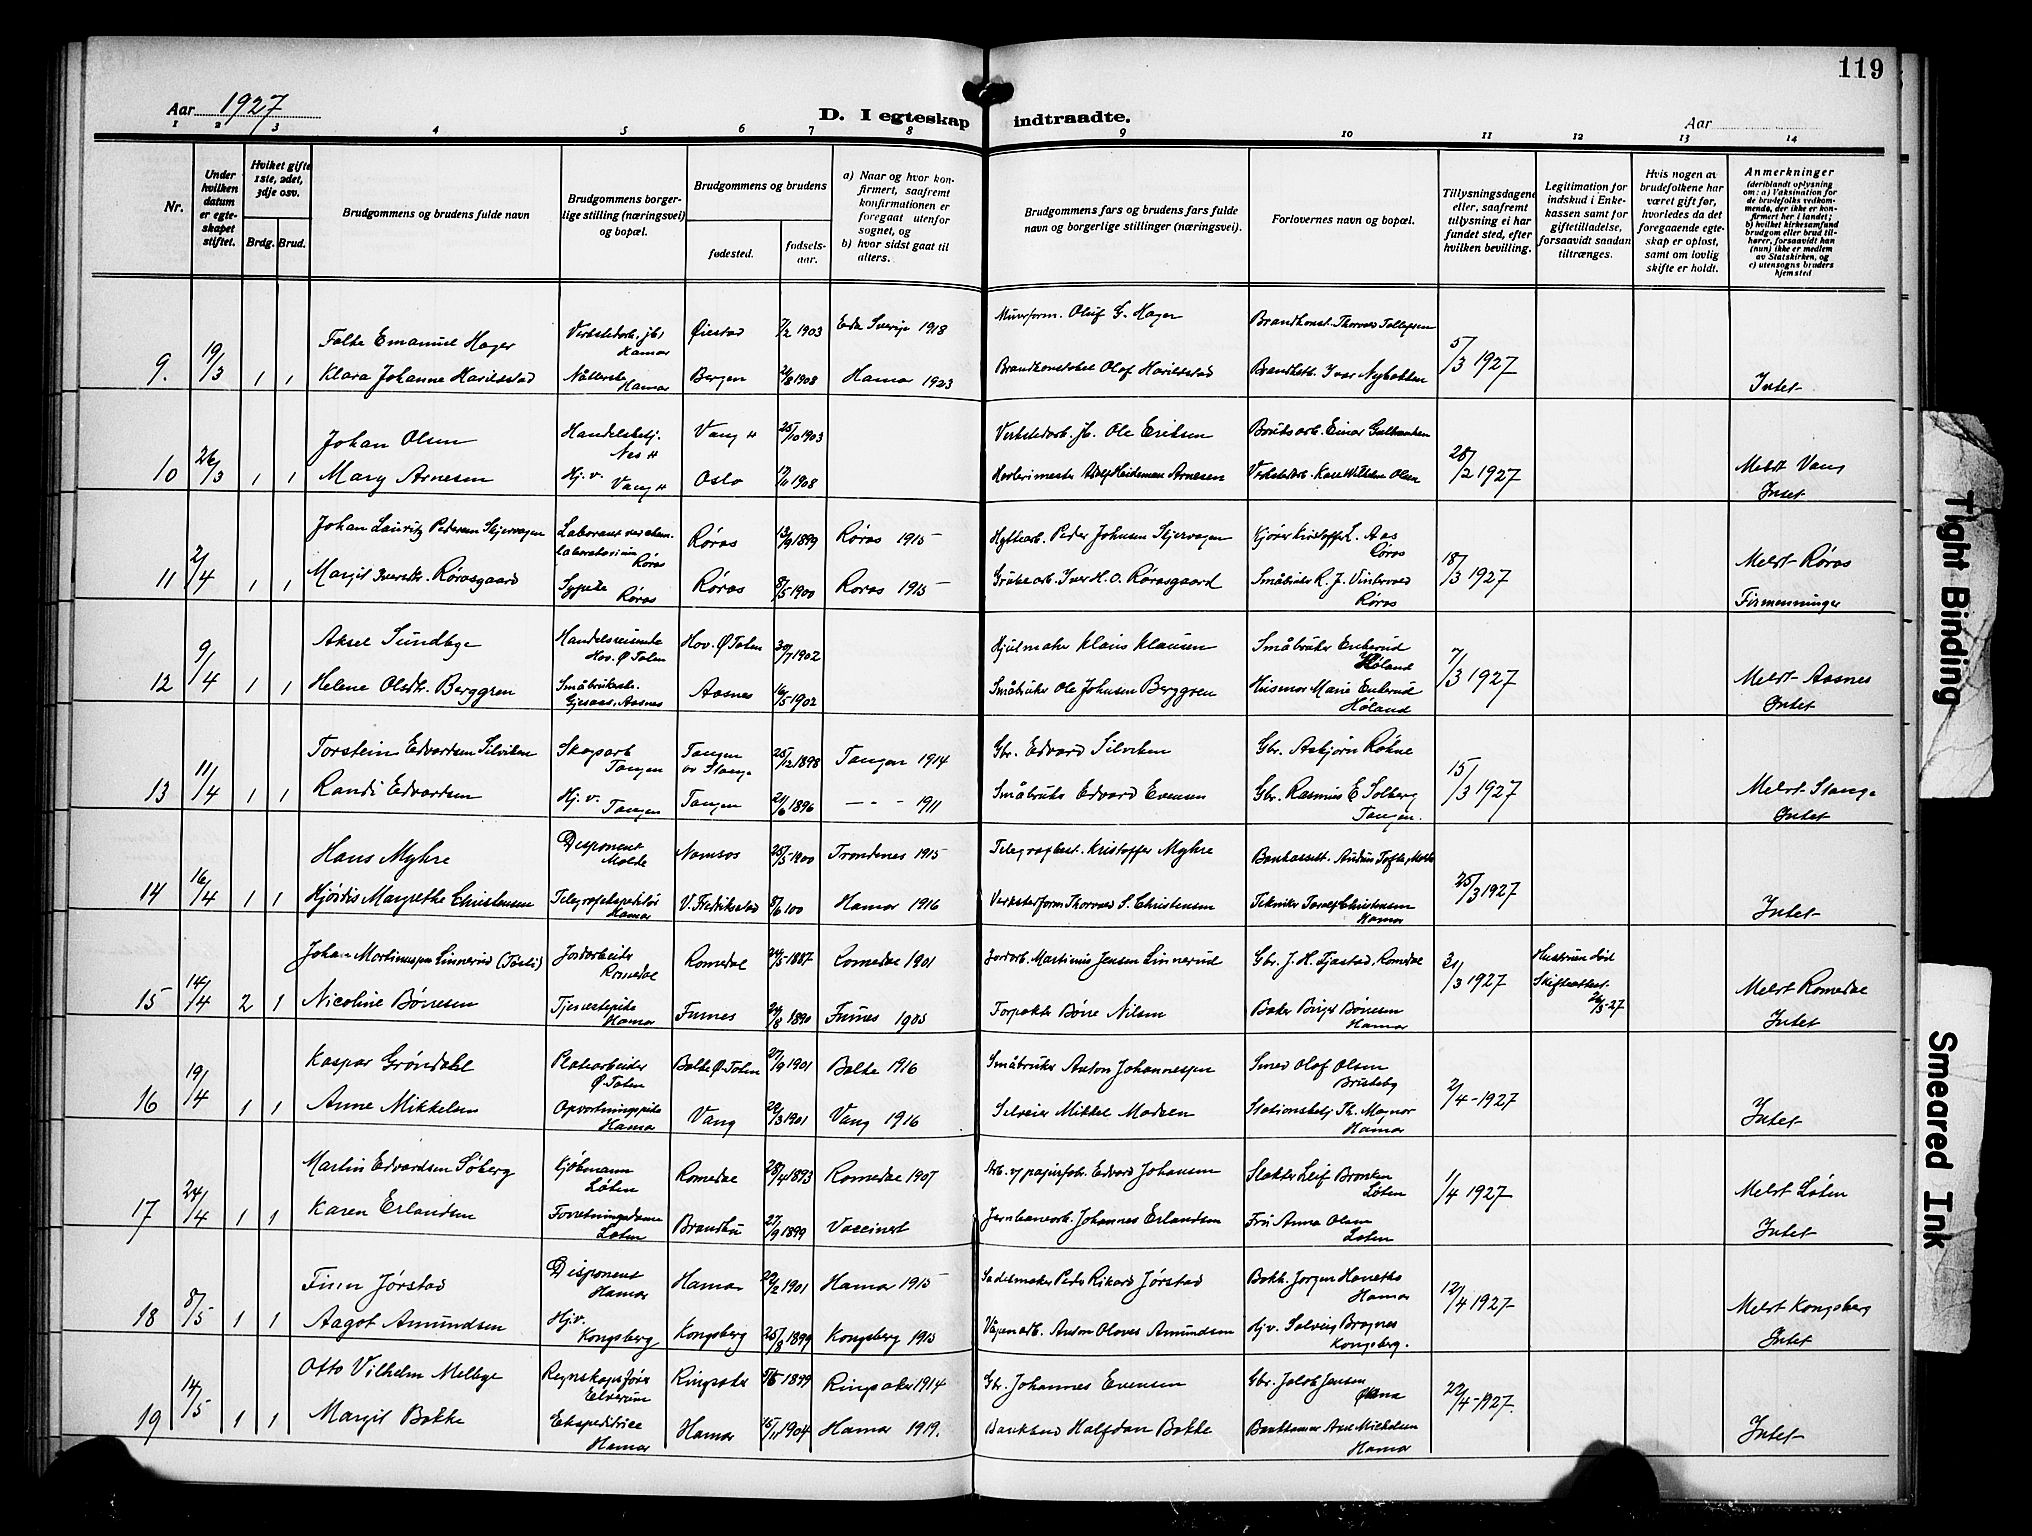 119
Aar 1927
D. I egteskap indtraadte.
Aar
1 2 3 4 5 6 7 8 9 10 11 12 13 14
Nr.
Under hvilken datum er egte-skapet stiftet.
Hvilket gifte 1ste, 2det, 3dje osv.
Brdg. Brud.
Brudgommens og brudens fulde navn
Brudgommens borger-lige stilling (næringsvei) og bopæl.
Brudgommens og brudens
fødested.
fødsels-aar.
a) Naar og hvor kon-firmert, saafremt konfirmationen er foregaat utenfor sognet, og
b) hvor sidst gaat til alters.
Brudgommens fars og brudens fars fulde navn og borgerlige stillinger (næringsvei).
Forlovernes navn og bopæl.
Tillysningsdagene eller, saafremt tillysning ei har fundet sted, efter hvilken bevilling.
Legitimation for indskud i Enke-kassen samt for giftetilladelse, forsaavidt saadan tiltrænges.
Hvis nogen av brudefolkene har været gift før, hvorledes da det foregaaende egte-skap er opløst, samt om lovlig skifte er holdt.
Anmerkninger (deriblandt oplysning om: a) Vaksination for de brudefolks vedkom-mende, der ikke er kon-firmert her i landet; b) hvilket kirkesamfund brudgom eller brud til-hører, forsaavidt han (hun) ikke er medlem av Statskirken, og c) utensogns bruders hjemsted
9. 19/3 1 1
Folke Emanuel Hager Verkstedarb. jb1 Hamar Øiestad 7/2 1903 Eda Sverige 1918 Murform. Oluf G. Hager Brandkonst. Thorvas Tollefsen 5/3 1927
Klara Johanne Harildstad Hamar Bergen 24/8 1908 Hamar 1923 Brandkonstabel Olaf Harildstad Ivar Nybakken Intet
10 26/3 1 1
Johan Olsen Handelsbetj. Nes H Vang H 25/10 1903 Verkstedarb. jb. Ole Eriksen Bruksarb. Einar 28/2 1927 Meldt Vang
Mary Arnesen Hj. v. Vang H Oslo 17/11 1908 Heideman Arnesen Verkstedarb. Kaare Wilhelm Olsen Intet
11 2/4 1 1
Johan Lauritz Pedersen Skjervagen Laborant ved chem. laboratorium Røros Røros 13/9 1899 Røros 1915 Hyttearb. Peder Johnsen Skjervagen Kjører Kristoffer L. Aas Røros 18/3 1927 Meldt Røros
Margit Iversdtr. Rørosgaard Sypike Røros Røros 8/5 1900 Roros 1915 Grubearb. Iver H. O. Rørosgaard Småbruker R. J. Røros Firmenninger
12 9/4 1 1
Aksel Sundbye Handelsreisende Hov. Ø Toten Hov. Ø Toten 30/7 1902 Hjulmaker Klaus Klausen Småbruker Enkerud Høland 7/3 1927 Meldt Aasnes
Helene Olsdtr. Berggren Gjesaas, Aasnes Aasnes 16/5 1902 Småbruker Ole Johnsen Berggren Husmor Marie Enkerud Høland Intet
13 11/4 1 1
Torstein Edvardsen Silviken Skogsarb Tangen Tangen av Stange 25/12 1898 Tangen 1914 Gbr. Edvard Silviken Gbr. Asbjørn Røhne 15/3 1927 Meldt Stange
Randi Edvardsen Hj. v. Tangen Tangen 21/6 1896 — " — 1911 Småbruker Edvard Evensen Gbr. Rasmus E Solberg Tangen. Intet
14 16/4 1 1
Hans Myhre Disponent Molde Namsos 25/5 1900 Trondenes 1915 Telegrafbest. Kristoffer Myhre Bankassist. Audun Tofte, Molde 25/3 1927
Hjørdis Margrethe Christensen Telegrafekspeditør Hamar V. Fredrikstad 8/6 00 Hamar 1916 Verksterform Thorvas S. Christensen Tekniker Christensen Hamar Intet
15 14/4 2 1
Johan Martinussen Linnerud (Tosti) Jordarbeider Romedal Romedal 24/5 1887 Romedal 1901 Jordarb. Martinus Jensen Linnerud Gbr. J. H. Fjæstad, Romedal 31/3 1927 Hustruen død Skifteattest 26/3-27 Meldt Romedal
Nicoline Børresen Tjenestepike Hamar Furnes 24/8 1890 Furnes 1905 Forpakter Børre Nilsen Baker Birger Børresen Hamar Intet
16 19/4 1 1
Kaspar Grøndahl Platearbeider Ø Toten Balke Ø Toten 27/9 1901 Balke 1916 Småbruker Anton Johannessen Smed Olaf Olsen 2/4-1927
Anne Mikkelsen Opvartningspike Hamar Vang 22/3 1901 Vang 1916 Selveier Mikkel Madsen Stationsbetj Th. Hamar Intet
17 24/4 1 1
Martin Edvardsen Søberg Kjøbmann Løten Romedal 28/4 1893 Romedal 1907 Arb. v/ papirfabr. Edvard Johansen Slakter Leif Løten 1/4 1927 Meldt Løten
Karen Erlandsen Forretningsdame Løten Brandbu 27/9 1899 Vaccinert Jernbanearb. Johannes Erlandsen Fru Anna Olsen Løten Intet
18 8/5 1 1
Finn Jørstad Disponent Hamar Hamar 22/2 1901 Hamar 1915 Sadelmaker Peder Rikard Jørstad Bokh. Jørgen Hamar 12/4 1927 Meldt Kongsberg
Aagot Amundsen Hj. v. Kongsberg Kongsberg 25/8 1899 Kongsberg 1915 Våpenarb. Anton Olaves Amundsen Hj v. Solveig Bragnes Kongsberg. Intet
19 14/5 1 1
Otto Vilhelm Melbye Regnskapsfører Elverum Ringsaker 1899 Ringsaker 1914 Gbr. Johannes Evensen Gbr. Jakob Jensen 22/4-1927.
Margit Bakke Ekspeditrice Hamar Hamar 15/11 1904 Hamar 1919. Banksud Halfdan Bakke Hamar Intet
Tight Binding
Smeared Ink